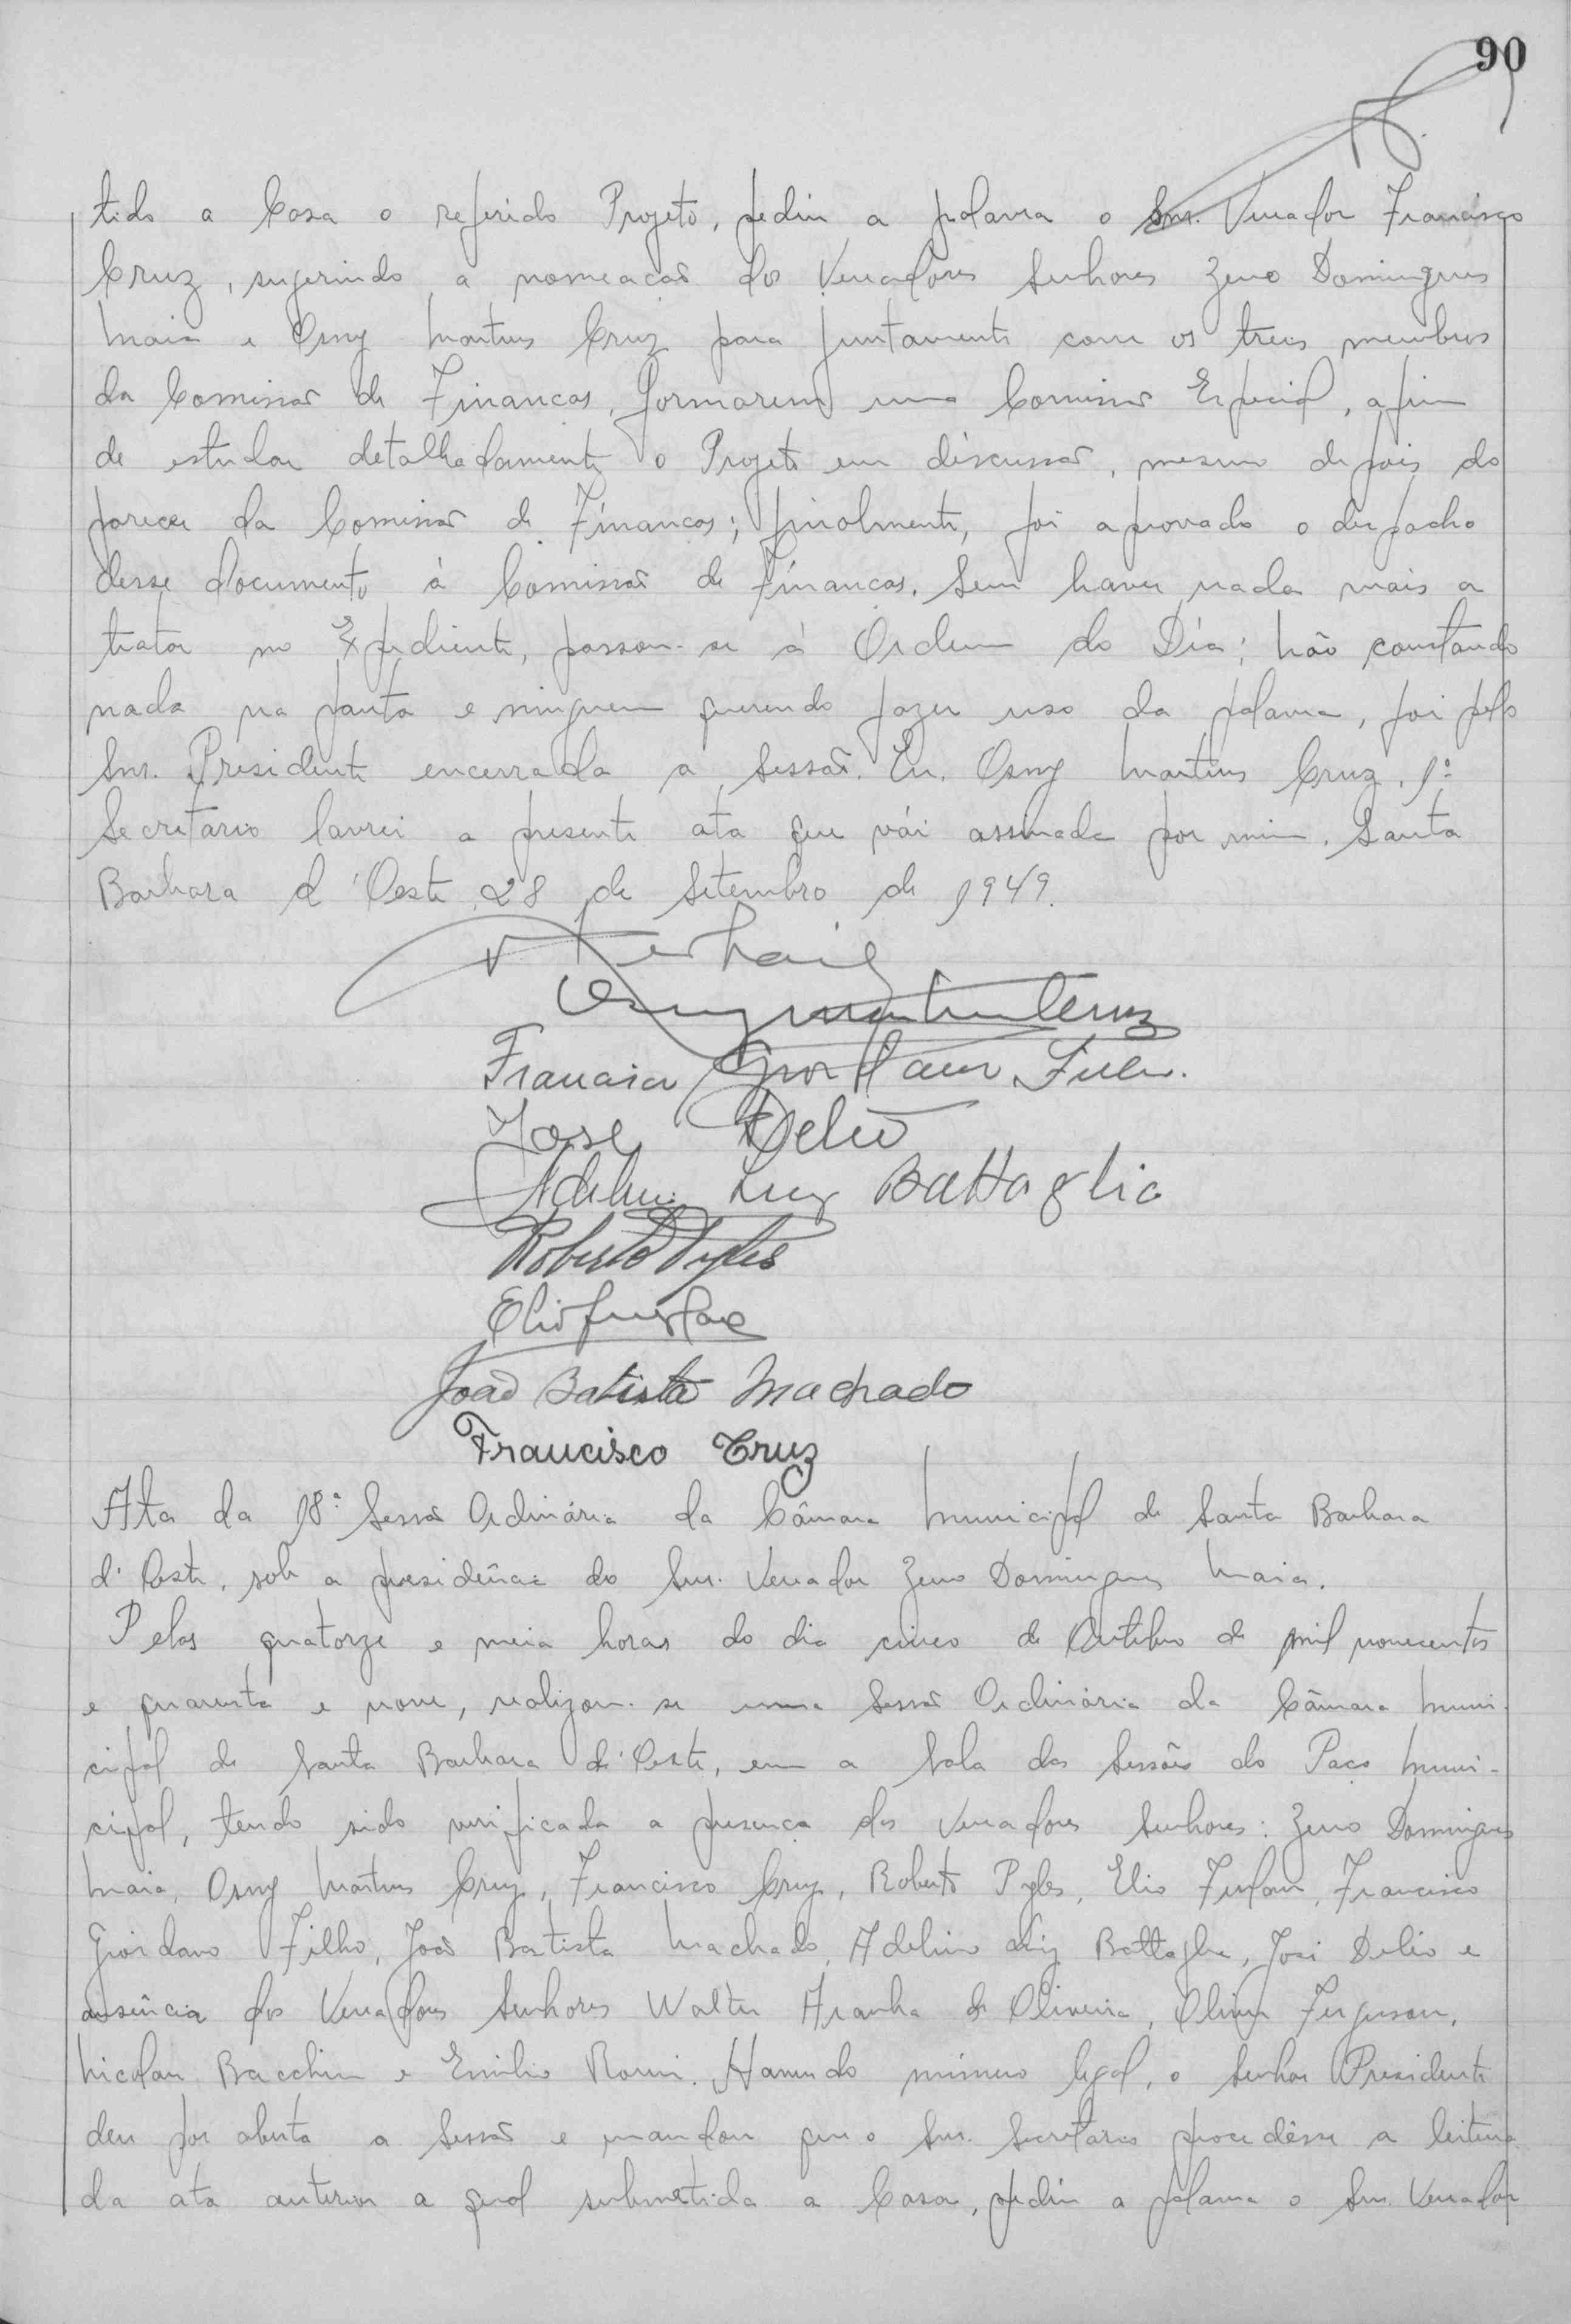 90
tido a Casa o referido Projeto, pediu a palavra o Snr. Vereador Francisco
Cruz, sugerindo a nomeacaõ dos Vereadores Senhores Zeno Domingues
Maia e Osny Martins Cruz para juntamente com os treis membros
da Comissaõ de Financas, formarem uma Comissaõ Especial, afim
de estudar detalhadamente o Projeto em discussaõ, mesmo depois do
parecer da Comissaõ de Financas; finalmente, foi aprovado o despacho
desse documento á Comissaõ de Financas. Sem haver nada mais a
tratar no Expediente, passou-se á Ordem do Dia; não constando
nada na pauta e ninguem querendo fazer uso da palavra, foi pelo
Snr. Presidente encerrada a Sessaõ. Eu, Osny Martins Cruz, 1º
Secretario lavrei a presente ata que vái assinada por mim. Santa
Barbara d'Oeste, 28 de Setembro de 1949.
Osny Martins Cruz
Francisco Giordano Filho.
José Delio
Adelino Luiz Battaglia
Roberto Pyles
Elio Furlan
João Batista Machado
Francisco Cruz
Ata da 18ª Sessaõ Ordinária da Câmara Municipal de Santa Barbara
d'Oeste, sob a presidência do Snr. Vereador Zeno Domingues Maia.
Pelas quatorze e meia horas do dia cinco de Outubro de mil novecentos
e quarenta e nove, realizou-se uma Sessaõ Ordinária da Câmara Muni-
cipal de Santa Barbara d'Oeste, em a Sala das Sessões do Paco Muni-
cipal, tendo sido verificada a presença dos Vereadores Senhores: Zeno Domingues
Maia, Osny Martins Cruz, Francisco Cruz, Roberto Pyles, Elio Furlan, Francisco
Giordano Filho, Joaõ Batista Machado, Adelino Luiz Battaglia, José Delio e
ausência dos Vereadores Senhores Walter Aranha de Oliveira, Oliver Ferguson,
Nicolau Bacchin e Emilio Romi. Havendo número legal, o Senhor Presidente
deu por aberta a Sessaõ e mandou que o Snr. Secretario procedêsse a leitura
da ata anterior a qual submetida a Casa, pediu a palavra o Snr. Vereador